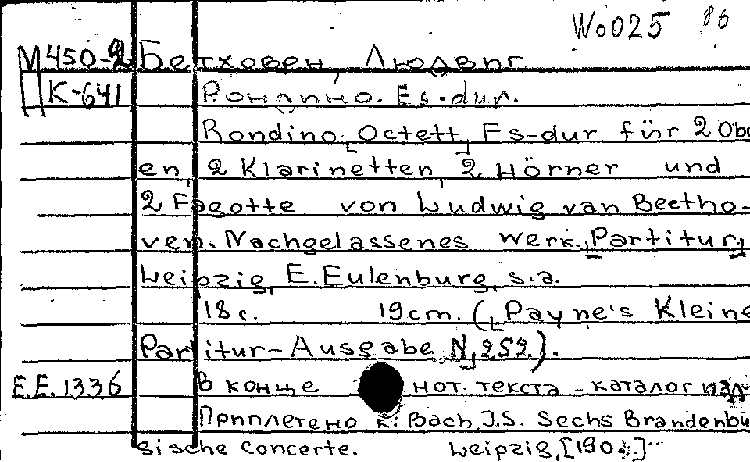 WoO25 86
М450-2 Бетховен, Людвиг
К-641 Рондино. Es-dur.
Rondino. [Octett] Es-dur für 2 Obo
en, 2 Klarinetten, 2 Hörner und
2 Fagotte von Ludwig van Beetho-
ven. Nachgelassenes Werk. Partitur,
Leipzig, E. Eulenburg, s.a.
18 с. 19 cm. (Payne's Kleine
Partitur-Ausgabe N 252.).
E.E.1336 В конце нот. текста - каталог изд.
Приплетено к: Bach, J.S. Sechs Brandenbu
gische Concerte. Leipzig,